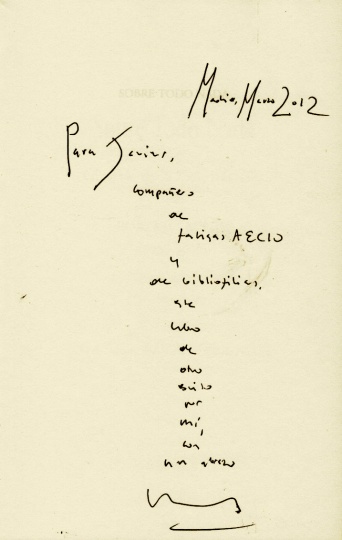 Madrid, Marzo 2012
Para Javier,
compañero
de
fatigas AECID
y
de bibliofilias,
este
libro
de
otro
escrito
por
mí,
con
un abrazo